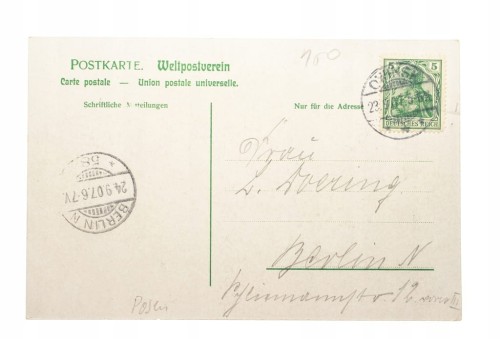 POSTKARTE. Weltpostverein
Carte postale — Union postale universelle.
Schriftliche Mitteilungen
Nur für die Adresse
150
5
DEUTSCHES REICH
BERLIN N
24.9.07.6-7V.
* 58 *
Frau
L. Doering
Berlin N
12
Posen